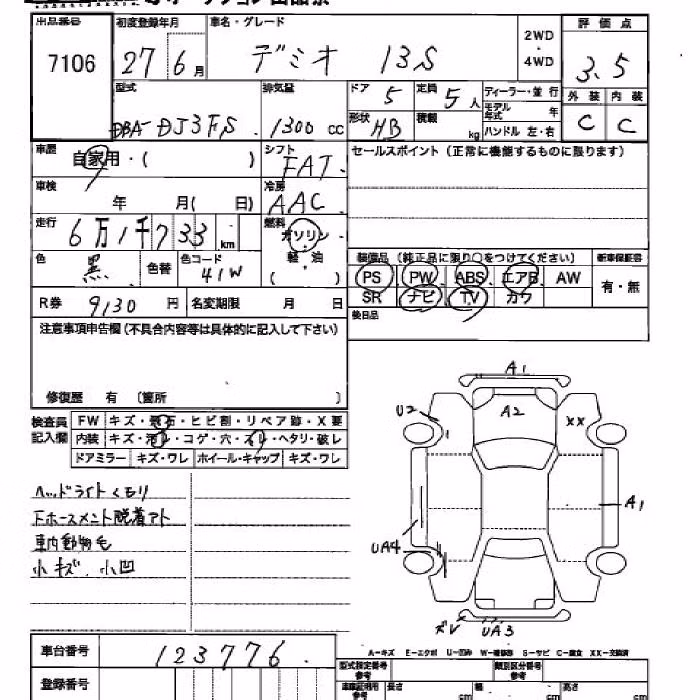 出品番号 初度登録年月 車名・グレード 2WD ・ 4WD 評価点
7106 27 6月 デミオ 13S 3.5
型式 排気量 ドア 定員 ディーラー・並行 外装 内装
DBA-DJ3FS 1300 cc 5 5人 モデル年式 年 C C
形状 HB 積載 kg ハンドル 左・右
車歴 自家用・( ) シフト FAT セールスポイント(正常に機能するものに限ります)
車検 年 月( 日) 冷房 AAC
走行 6万1千733 km 燃料 ガソリン・軽・油 ( )
色 黒 色替 色コード 41W
装備品(純正品に限り〇をつけてください) 新車保証書
PS PW ABS エアB AW 有・無
SR ナビ TV カワ
R券 9130 円 名変期限 月 日 後日品
注意事項申告欄(不具合内容等は具体的に記入して下さい)
修復歴 有 〔箇所 〕
検査員記入欄 FW キズ・飛石・ヒビ割・リペア跡・X要
内装 キズ・汚レ・コゲ・穴・スレ・ヘタリ・破レ
ドアミラー キズ・ワレ ホイール・キャップ キズ・ワレ
ヘッドライトくモリ
Fホースメント脱着アト
車内動物毛
小キズ、小凹
A1
U2 A2 XX
A1
UA4
ズレ UA3
車台番号 123776
A-キズ E-エクボ U-凹み W-補修跡 S-サビ C-腐食 XX-交換済
登録番号 型式指定番号 類別区分番号
長さ cm 幅 cm 高さ cm